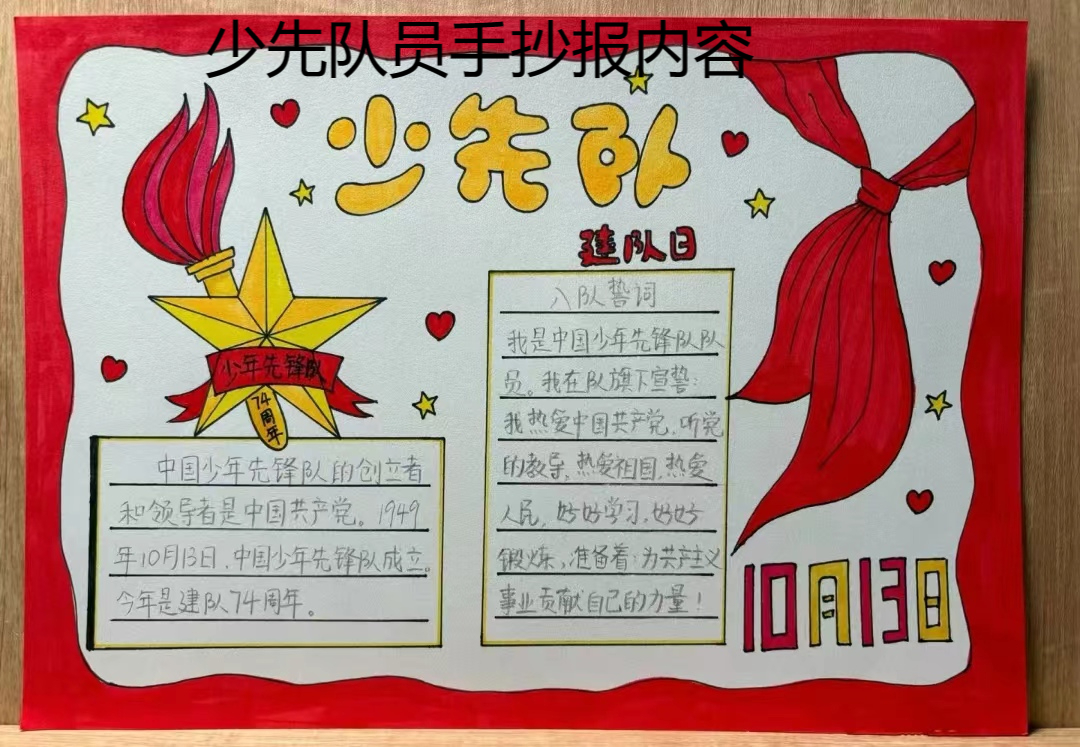 少先队员手抄报内容
少先队
建队日
少年先锋队
74周年
中国少年先锋队的创立者
和领导者是中国共产党。1949
年10月13日,中国少年先锋队成立。
今年是建队74周年。
入队誓词
我是中国少年先锋队队
员。我在队旗下宣誓:
我热爱中国共产党,听党
的教导,热爱祖国,热爱
人民,好好学习,好好
锻炼,准备着:为共产主义
事业贡献自己的力量!
10月13日